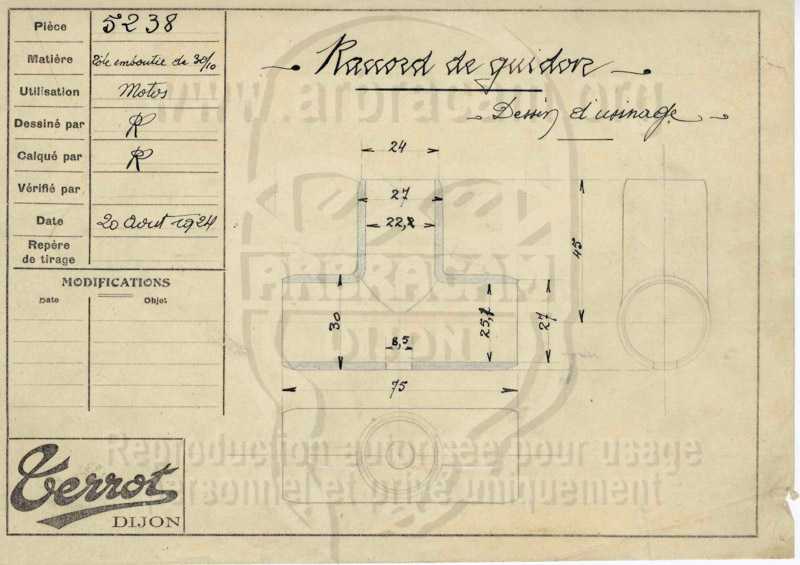 Pièce 5238
Matière Tôle emboutie de 30/10
Utilisation Motos
Dessiné par R
Calqué par R
Vérifié par
Date 20 Aout 1924
Repère
de tirage
MODIFICATIONS
Date Objet
Terrot
DIJON
Raccord de guidon
Dessin d'usinage
www.arbracam.org
24
27
22,2
45
ARBRACAM
DIJON
30
8,5
25,2
27
75
Reproduction autorisée pour usage
personnel et privé uniquement